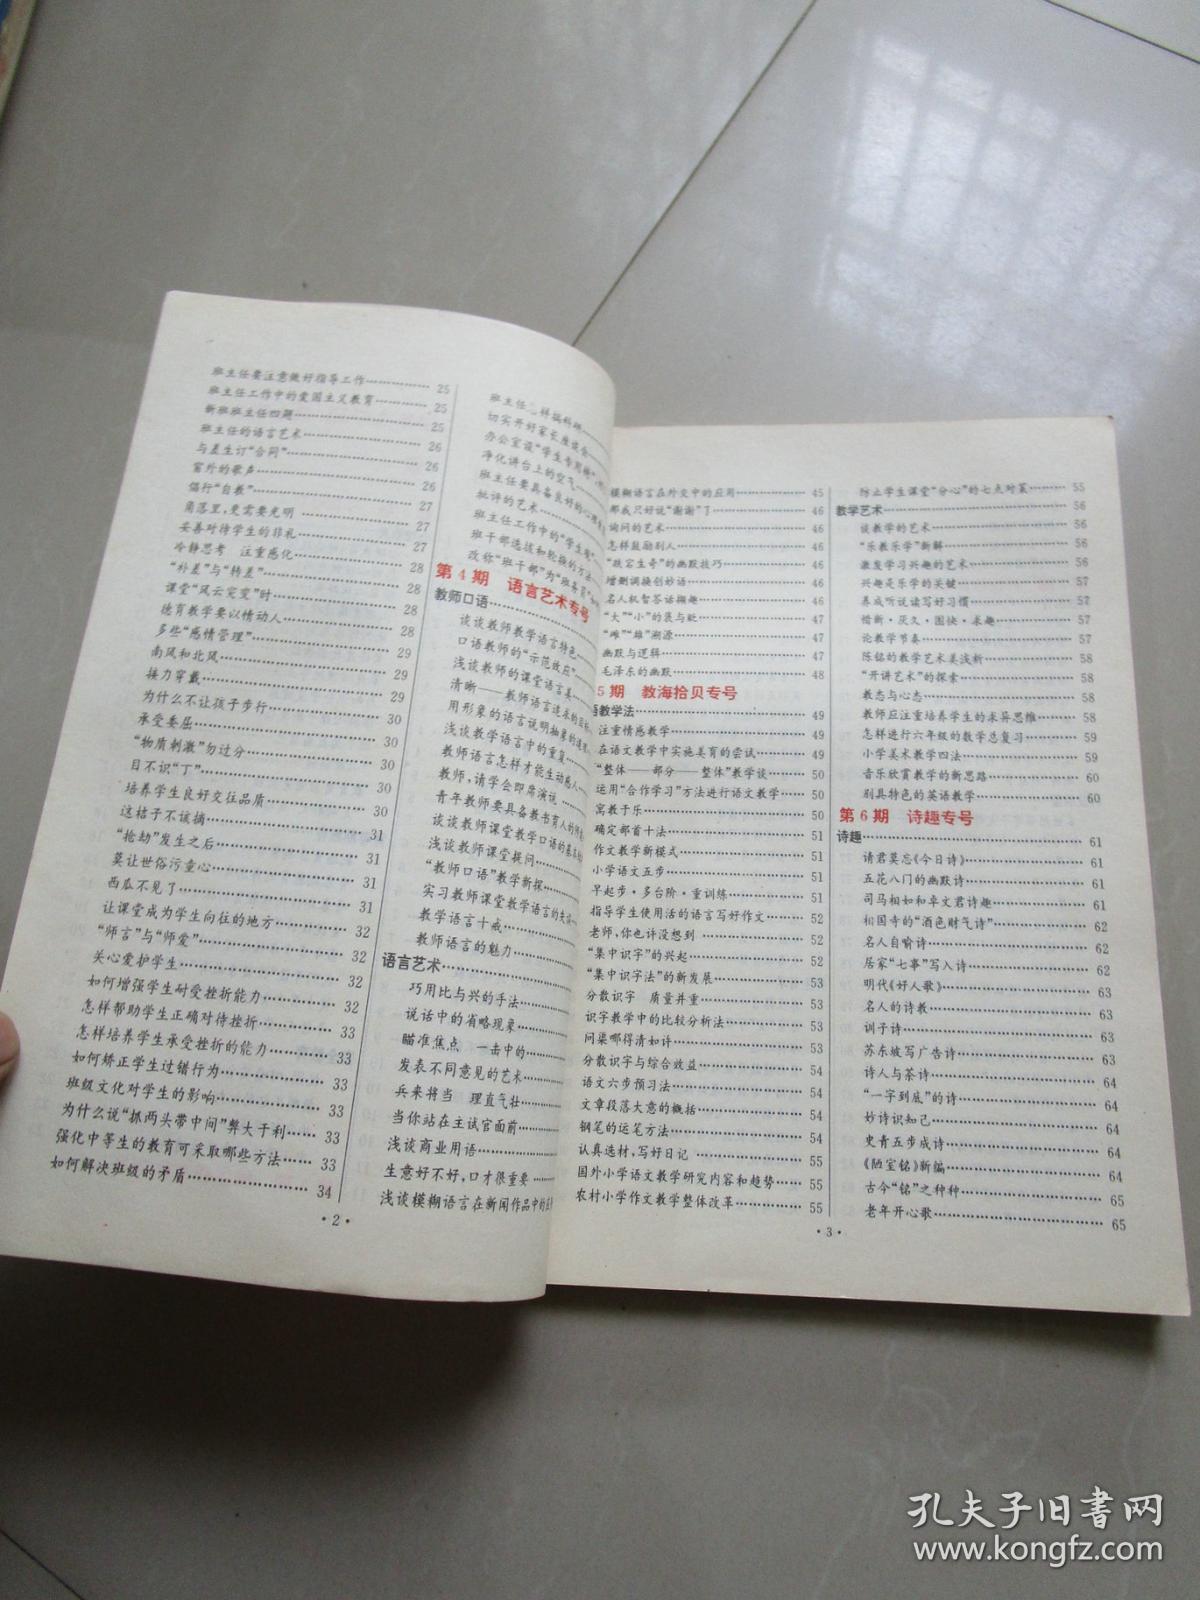 班主任要注意做好指导工作……………25
班主任工作中的爱国主义教育…………25
新班班主任四题……………25
班主任的语言艺术……………26
与差生订“合同”……………26
窗外的歌声……………26
倡行“自教”……………27
角落里,更需要光明……………27
妥善对待学生的非礼……………27
冷静思考 注重感化……………28
“补差”与“转差”……………28
课堂“风云突变”时……………28
德育教学要以情动人……………28
多些“感情管理”……………29
南风和北风……………29
接力穿戴……………29
为什么不让孩子步行……………30
承受委屈……………30
“物质刺激”勿过分……………30
目不识“丁”……………30
培养学生良好交往品质……………30
这桔子不该摘……………31
“抢劫”发生之后……………31
莫让世俗污童心……………31
西瓜不见了……………31
让课堂成为学生向往的地方……………32
“师言”与“师爱”……………32
关心爱护学生……………32
如何增强学生耐受挫折能力……………32
怎样帮助学生正确对待挫折……………33
怎样培养学生承受挫折的能力…………33
如何矫正学生过错行为……………33
班级文化对学生的影响……………33
为什么说“抓两头带中间”弊大于利……33
强化中等生的教育可采取哪些方法……33
如何解决班级的矛盾……………34
·2·
班主任怎样搞科研
切实开好家长座谈会
办公室设“学生专用椅”
净化讲台上的空气
班主任要具备良好的心理
批评的艺术
班主任工作中的“学生观”
班干部选拔和轮换的方法
改称“班干部”为“班务员”
第4期 语言艺术专号
教师口语
谈谈教师教学语言特色
口语教师的“示范效应”
浅谈教师的课堂语言美
清晰——教师语言达本的目标
用形象的语言说明抽象的道理
浅谈教学语言中的重复
教师语言怎样才能生动感人
教师,请学会即席演说
青年教师要具备教书育人的
谈谈教师课堂教学口语的基本
浅谈教师课堂提问
“教师口语”教学新探
实习教师课堂教学语言的失误
教学语言十戒
教师语言的魅力
语言艺术
巧用比与兴的手法
说话中的省略现象
瞄准焦点 一击中的
发表不同意见的艺术
兵来将当 理直气壮
当你站在主试官面前
浅谈商业用语
生意好不好,口才很重要
浅谈模糊语言在新闻作品中的
模糊语言在外交中的应用……………45
那我只好说“谢谢”了……………46
询问的艺术……………46
怎样鼓励别人……………46
“跌宕生奇”的幽默技巧……………46
增删调换创妙语……………46
名人机智答话撷趣……………46
“大”“小”的褒与贬……………47
“雌”“雄”溯源……………47
幽默与逻辑……………47
毛泽东的幽默……………48
5期 教海拾贝专号
语教学法……………49
注重情感教学……………49
在语文教学中实施美育的尝试…………49
“整体——部分——整体”教学谈………50
运用“合作学习”方法进行语文教学……50
寓教于乐……………50
确定部首十法……………51
作文教学新模式……………51
小学语文五步……………51
早起步·多台阶·重训练……………51
指导学生使用活的语言写好作文………52
老师,你也许没想到……………52
“集中识字”的兴起……………52
“集中识字法”的新发展……………53
分散识字 质量并重……………53
识字教学中的比较分析法……………53
问渠哪得清如许……………53
分散识字与综合效益……………54
语文六步预习法……………54
文章段落大意的概括……………54
钢笔的运笔方法……………54
认真选材,写好日记……………55
国外小学语文教学研究内容和趋势……55
农村小学作文教学整体改革……………55
·3·
防止学生课堂“分心”的七点对策………55
教学艺术……………56
谈教学的艺术……………56
“乐教乐学”新解……………56
激发学习兴趣的艺术……………56
兴趣是乐学的关键……………57
养成听说读写好习惯……………57
惜新·厌久·图快·求趣……………57
论教学节奏……………57
陈铭的教学艺术美浅析……………58
“开讲艺术”的探索……………58
教态与心态……………58
教师应注重培养学生的求异思维………58
怎样进行六年级的数学总复习…………59
小学美术教学四法……………59
音乐欣赏教学的新思路……………60
别具特色的英语教学……………60
第6期 诗趣专号
诗趣……………61
请君莫忘《今日诗》……………61
五花八门的幽默诗……………61
司马相如和卓文君诗趣……………61
相国寺的“酒色财气诗”……………62
名人自喻诗……………62
居家“七事”写入诗……………62
明代《好人歌》……………63
名人的诗教……………63
训子诗……………63
苏东坡写广告诗……………63
诗人与茶诗……………64
“一字到底”的诗……………64
妙诗识知己……………64
史青五步成诗……………64
《陋室铭》新编……………64
古今“铭”之种种……………65
老年开心歌……………65
孔夫子旧书网
www.kongfz.com